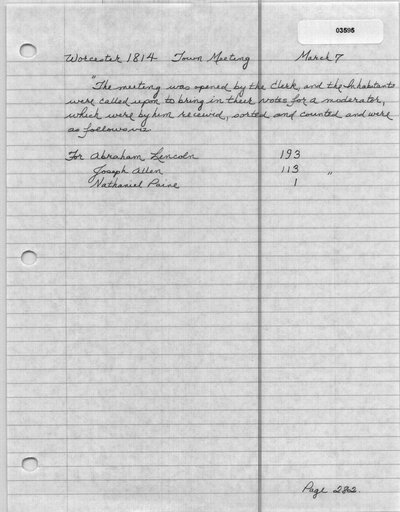 03595
Worcester 1814 Town Meeting March 7
"The meeting was opened by the Clerk, and the Inhabitants
were called upon to bring in their votes for a moderator,
which were by him received, sorted and counted and were
as follows viz
For Abraham Lincoln 193
Joseph Allen 113 "
Nathaniel Paine 1
Page 282.